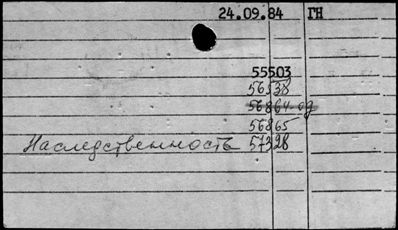 24.09.84 ГН
55503
56538
56864 од
56865
Наследственность 57328